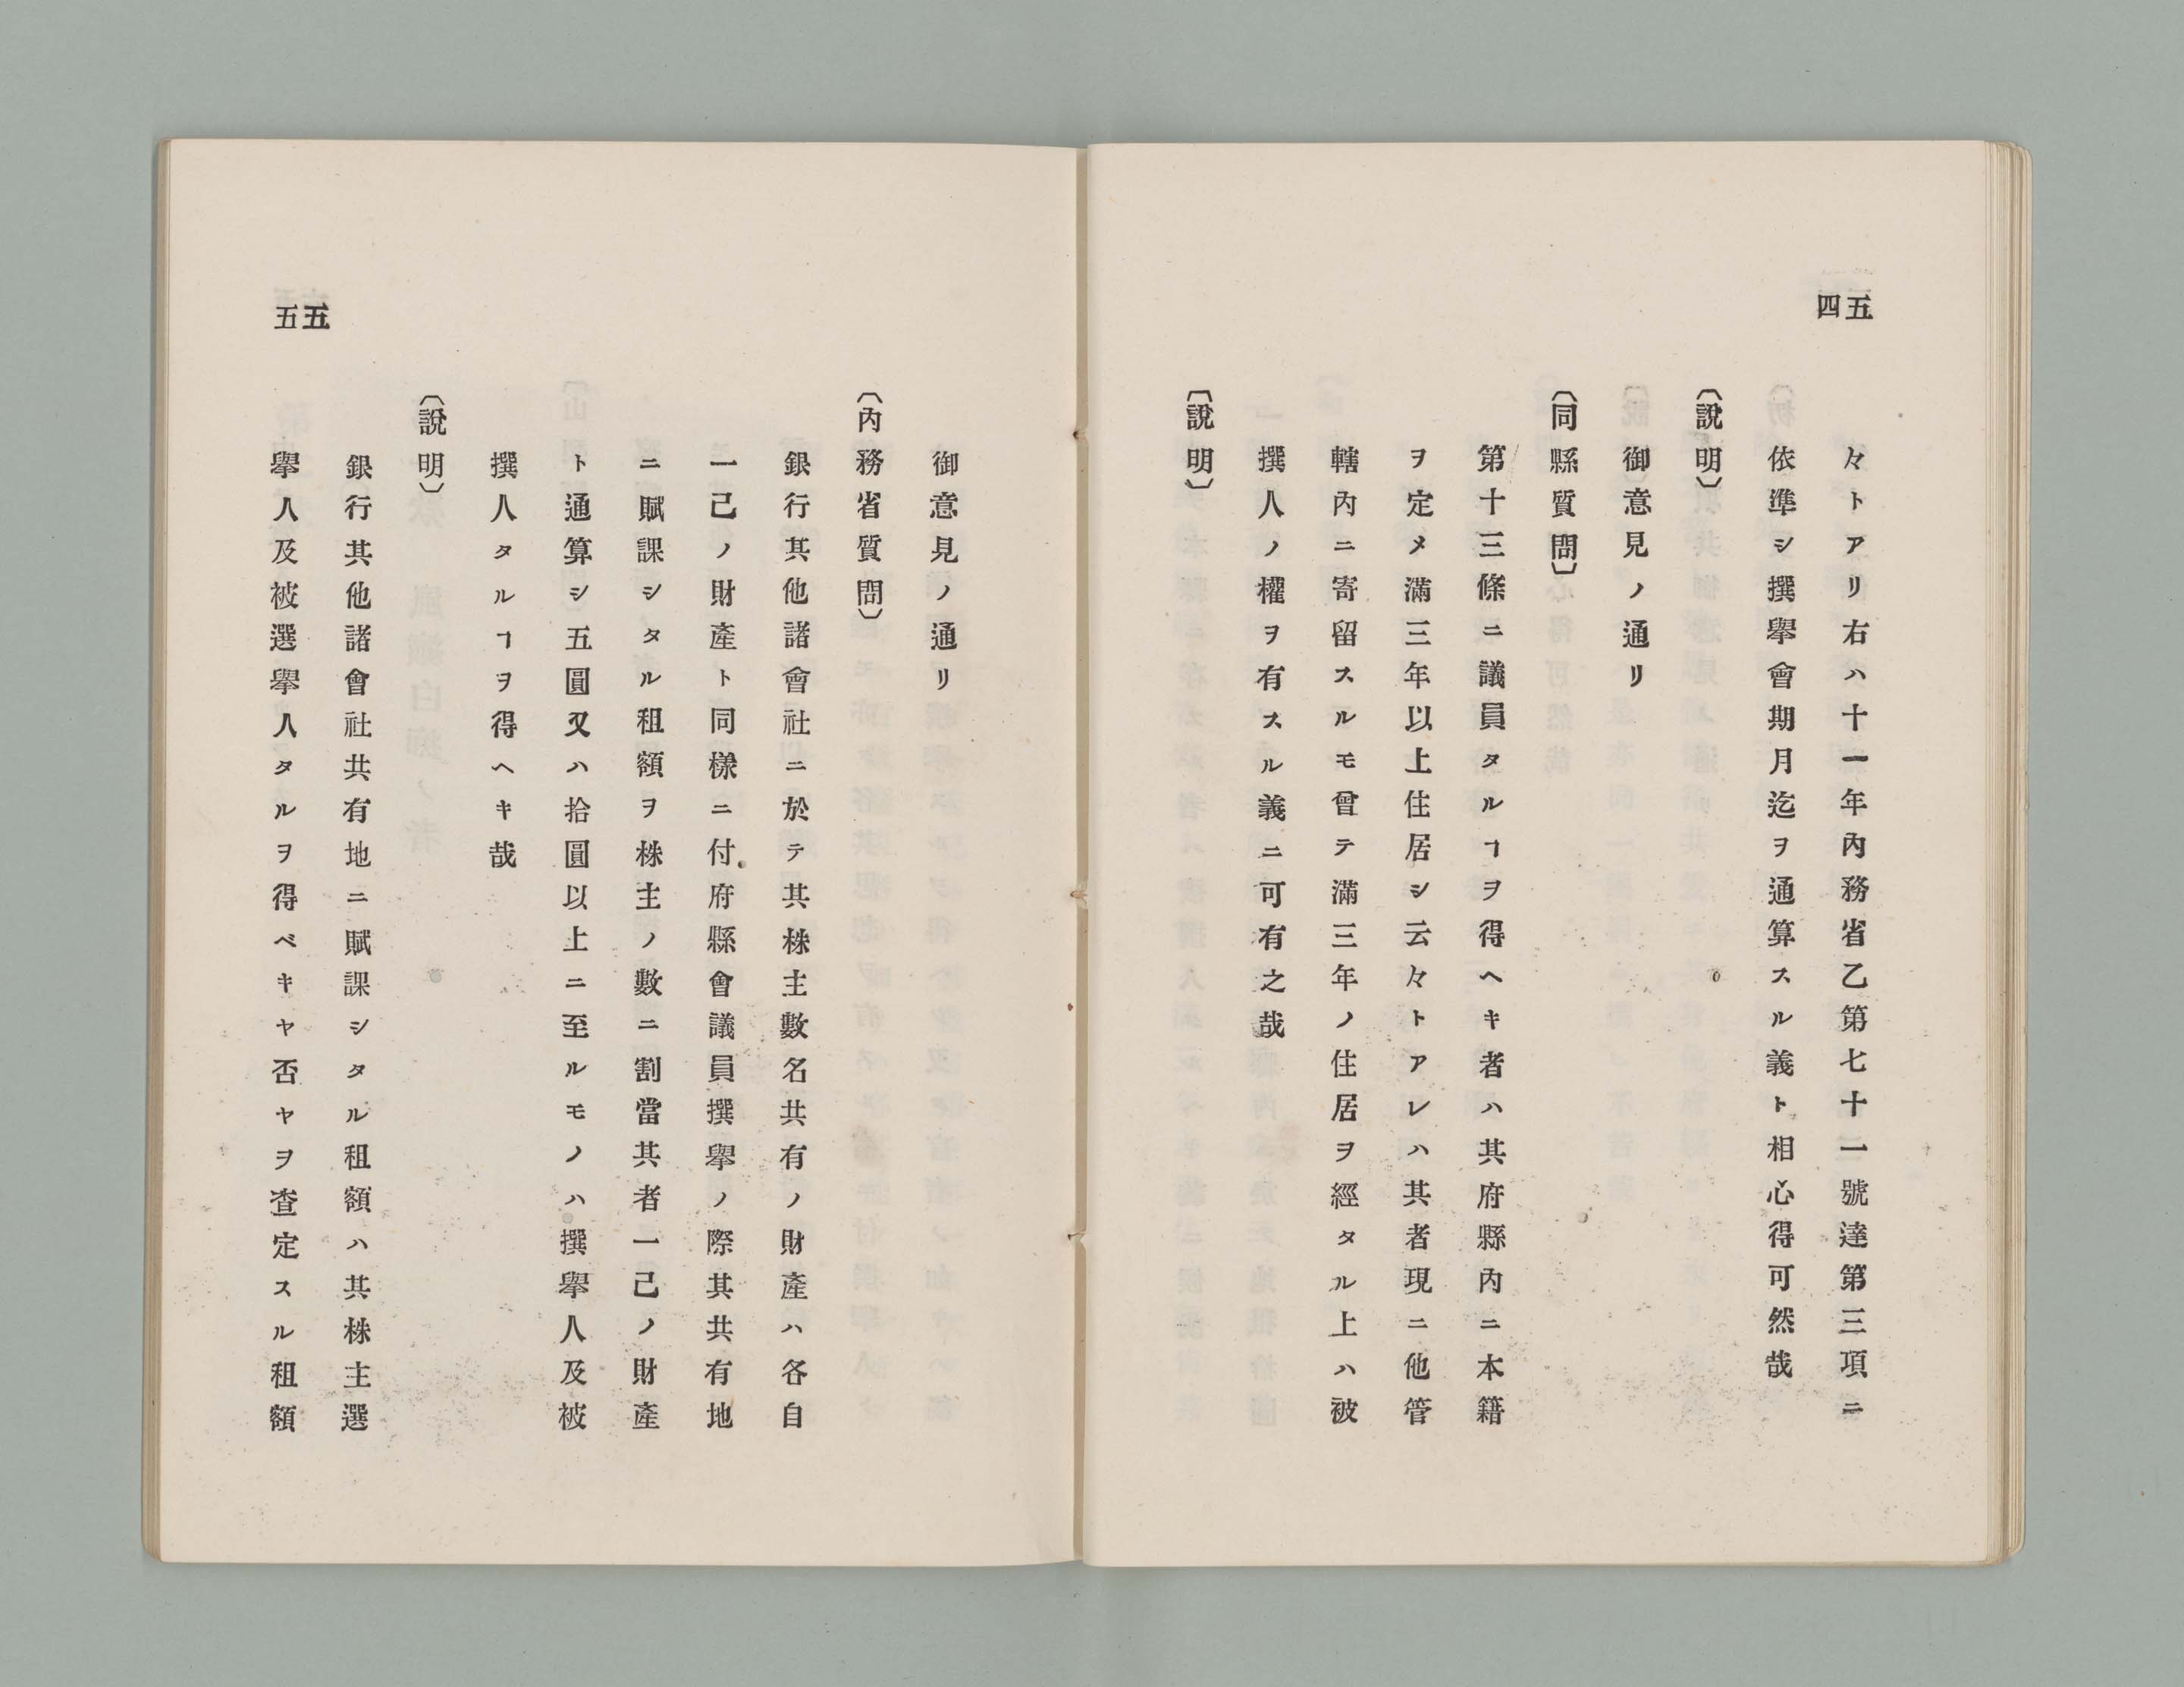 五四
々トアリ右ハ十一年內務省乙第七十二號達第三項ニ
依準シ撰擧會期月迄ヲ通算スル義ト相心得可然哉
〔說明〕
御意見ノ通リ
〔同縣質問〕
第十三條ニ議員タルヿヲ得ヘキ者ハ其府縣內ニ本籍
ヲ定メ滿三年以上住居シ云々トアレハ其者現ニ他管
轄內ニ寄留スルモ曾テ滿三年ノ住居ヲ經タル上ハ被
撰人ノ權ヲ有スル義ニ可有之哉
〔說明〕
五五
御意見ノ通リ
〔內務省質問〕
銀行其他諸會社ニ於テ其株主數名共有ノ財產ハ各自
一己ノ財產ト同樣ニ付府縣會議員撰擧ノ際其共有地
ニ賦課シタル租額ヲ株主ノ數ニ割當其者一己ノ財產
ト通算シ五圓又ハ拾圓以上ニ至ルモノハ撰擧人及被
撰人タルヿヲ得ヘキ哉
〔說明〕
銀行其他諸會社共有地ニ賦課シタル租額ハ其株主選
擧人及被選擧人タルヲ得ベキヤ否ヤヲ査定スル租額